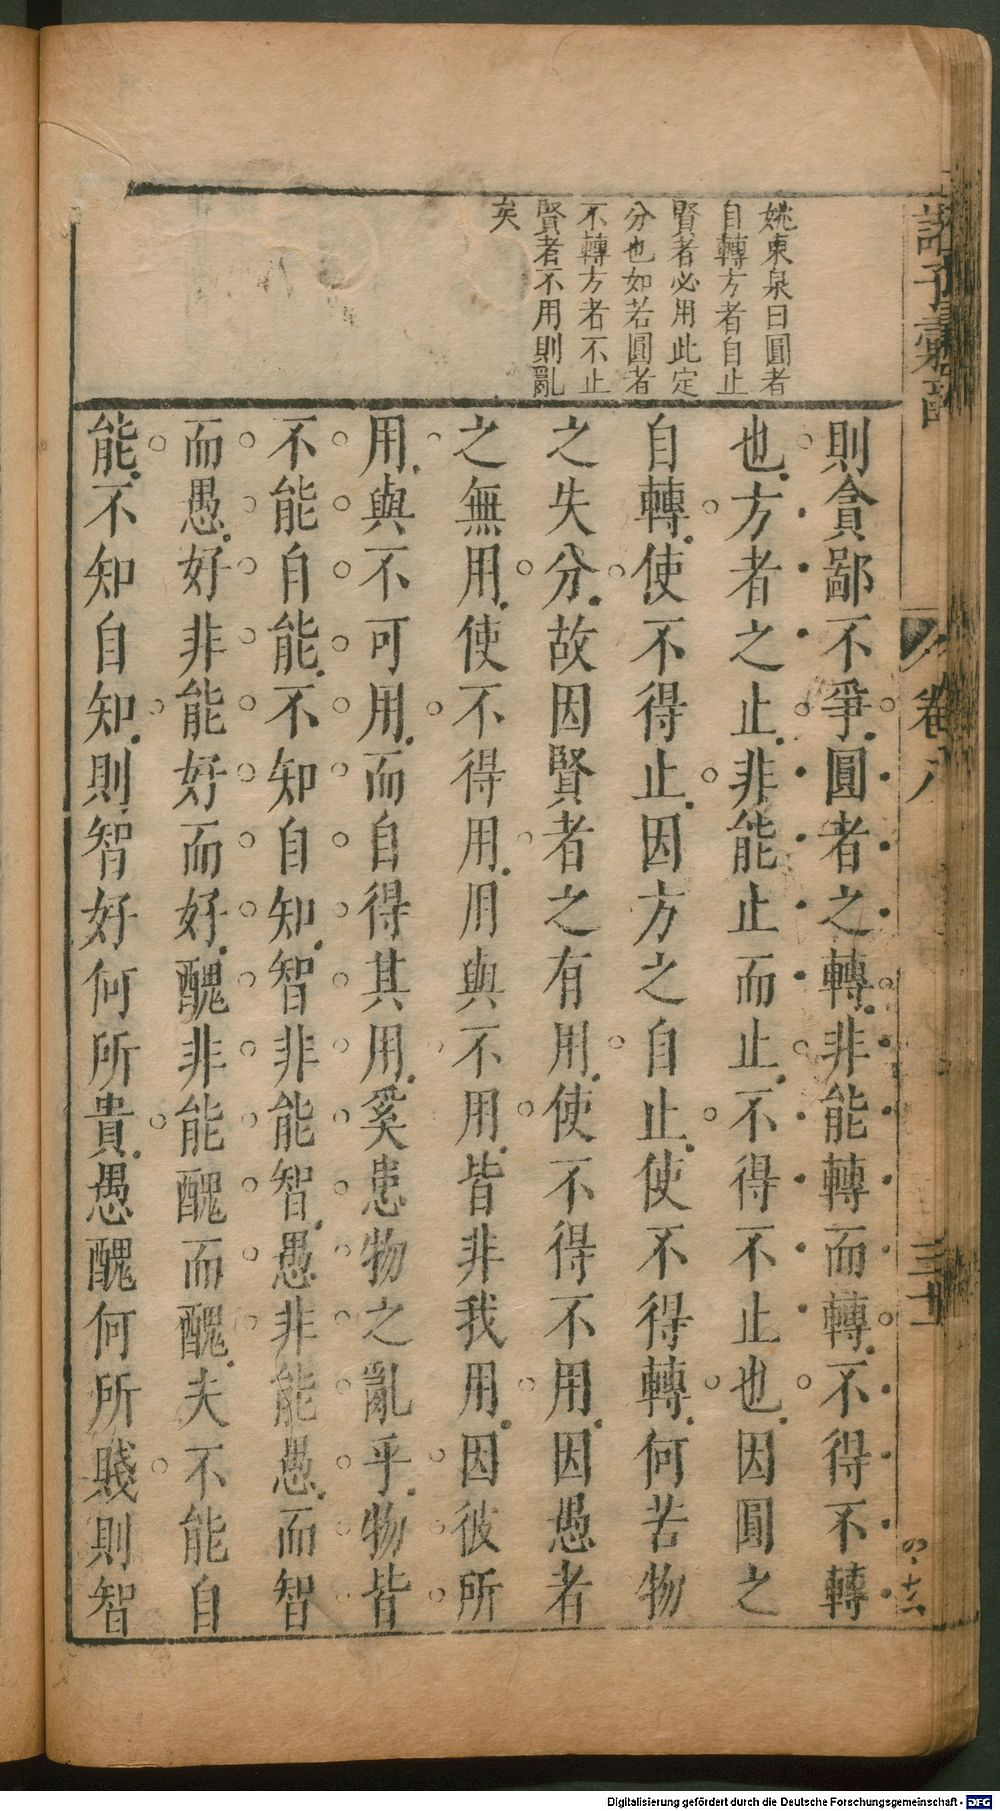 姚東泉曰圓者
自轉方者自止
賢者必用此定
分也如若圓者
不轉方者不止
賢者不用則亂
矣
則貪鄙不爭圓者之轉非能轉而轉不得不轉
也方者之止非能止而止不得不止也因圓之
自轉使不得止因方之自止使不得轉何苦物
之失分故因賢者之有用使不得不用因愚者
之無用使不得用用與不用皆非我用因彼所
用與不可用而自得其用奚患物之亂乎物皆
不能自能不知自知智非能智愚非能愚而智
而愚好非能好而好醜非能醜而醜夫不能自
能不知自知則智好何所貴愚醜何所賤則智
諸子彙函
卷八
Digitalisierung gefördert durch die Deutsche Forschungsgemeinschaft - DFG